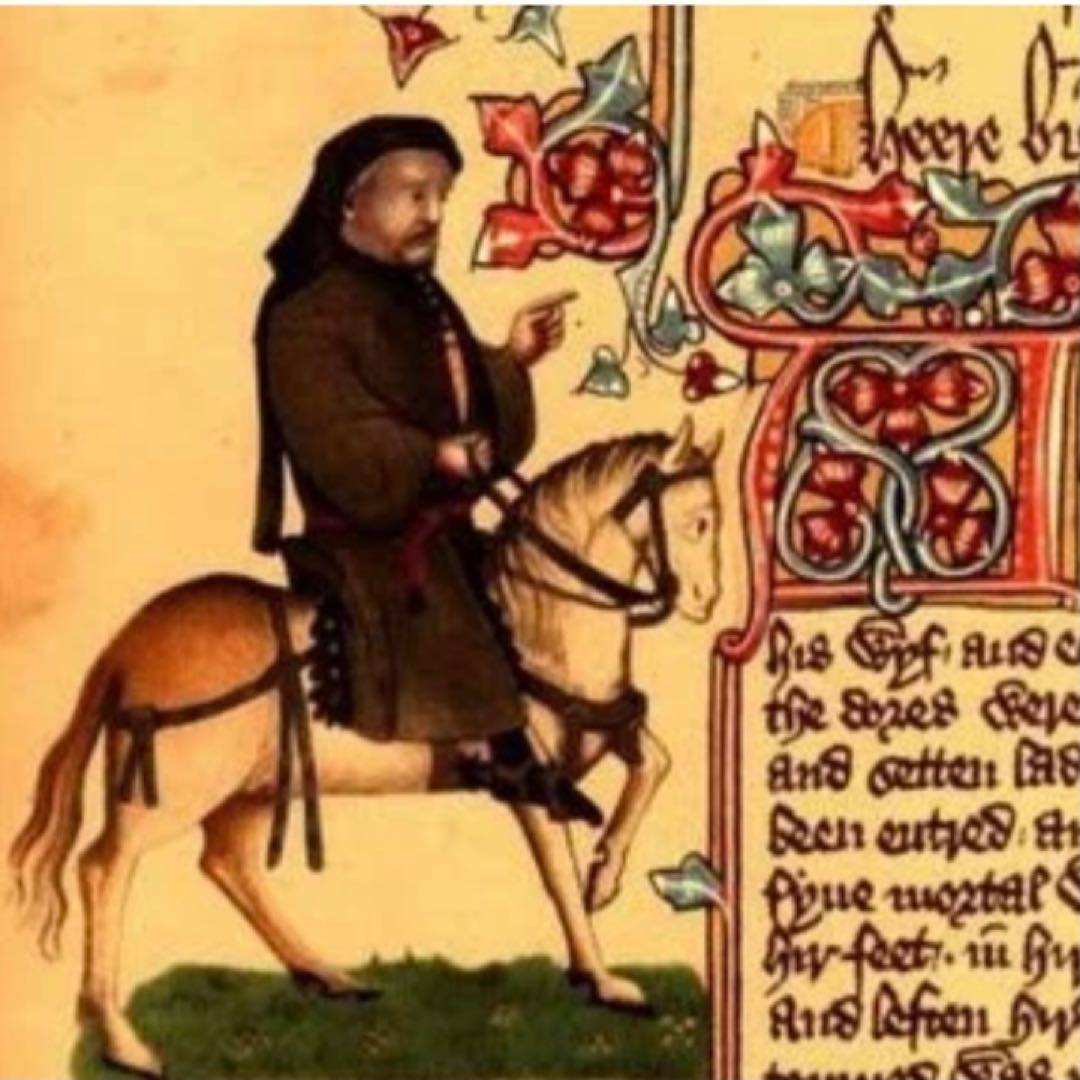 heere
his Wyf and
the dores were
and setten
been entred
fyue mortal
hir feet in
And leften